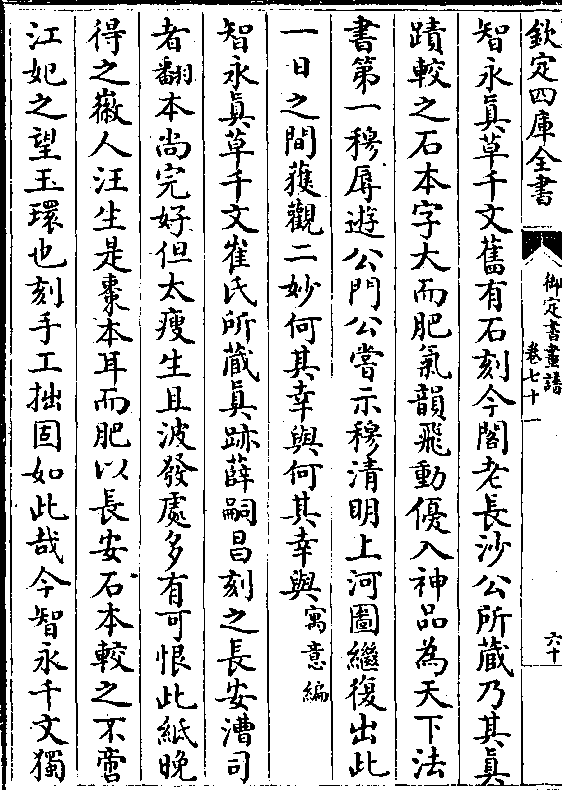 欽定四庫全書
御定書畫譜
卷七十一
六十
智永真草千文舊有石刻今閣老長沙公所藏乃其真
蹟較之石本字大而肥氣韻飛動優入神品為天下法
書第一穆辱遊公門公嘗示穆清明上河圖繼復出此
一日之間獲觀二妙何其幸與何其幸與寓意編
智永真草千文崔氏所藏真跡薛嗣昌刻之長安漕司
者翻本尚完好但太瘦生且波發處多有可恨此紙晚
得之徽人汪生是棗本耳而肥以長安石本較之不啻
江妃之望玉環也刻手工拙固如此哉今智永千文獨